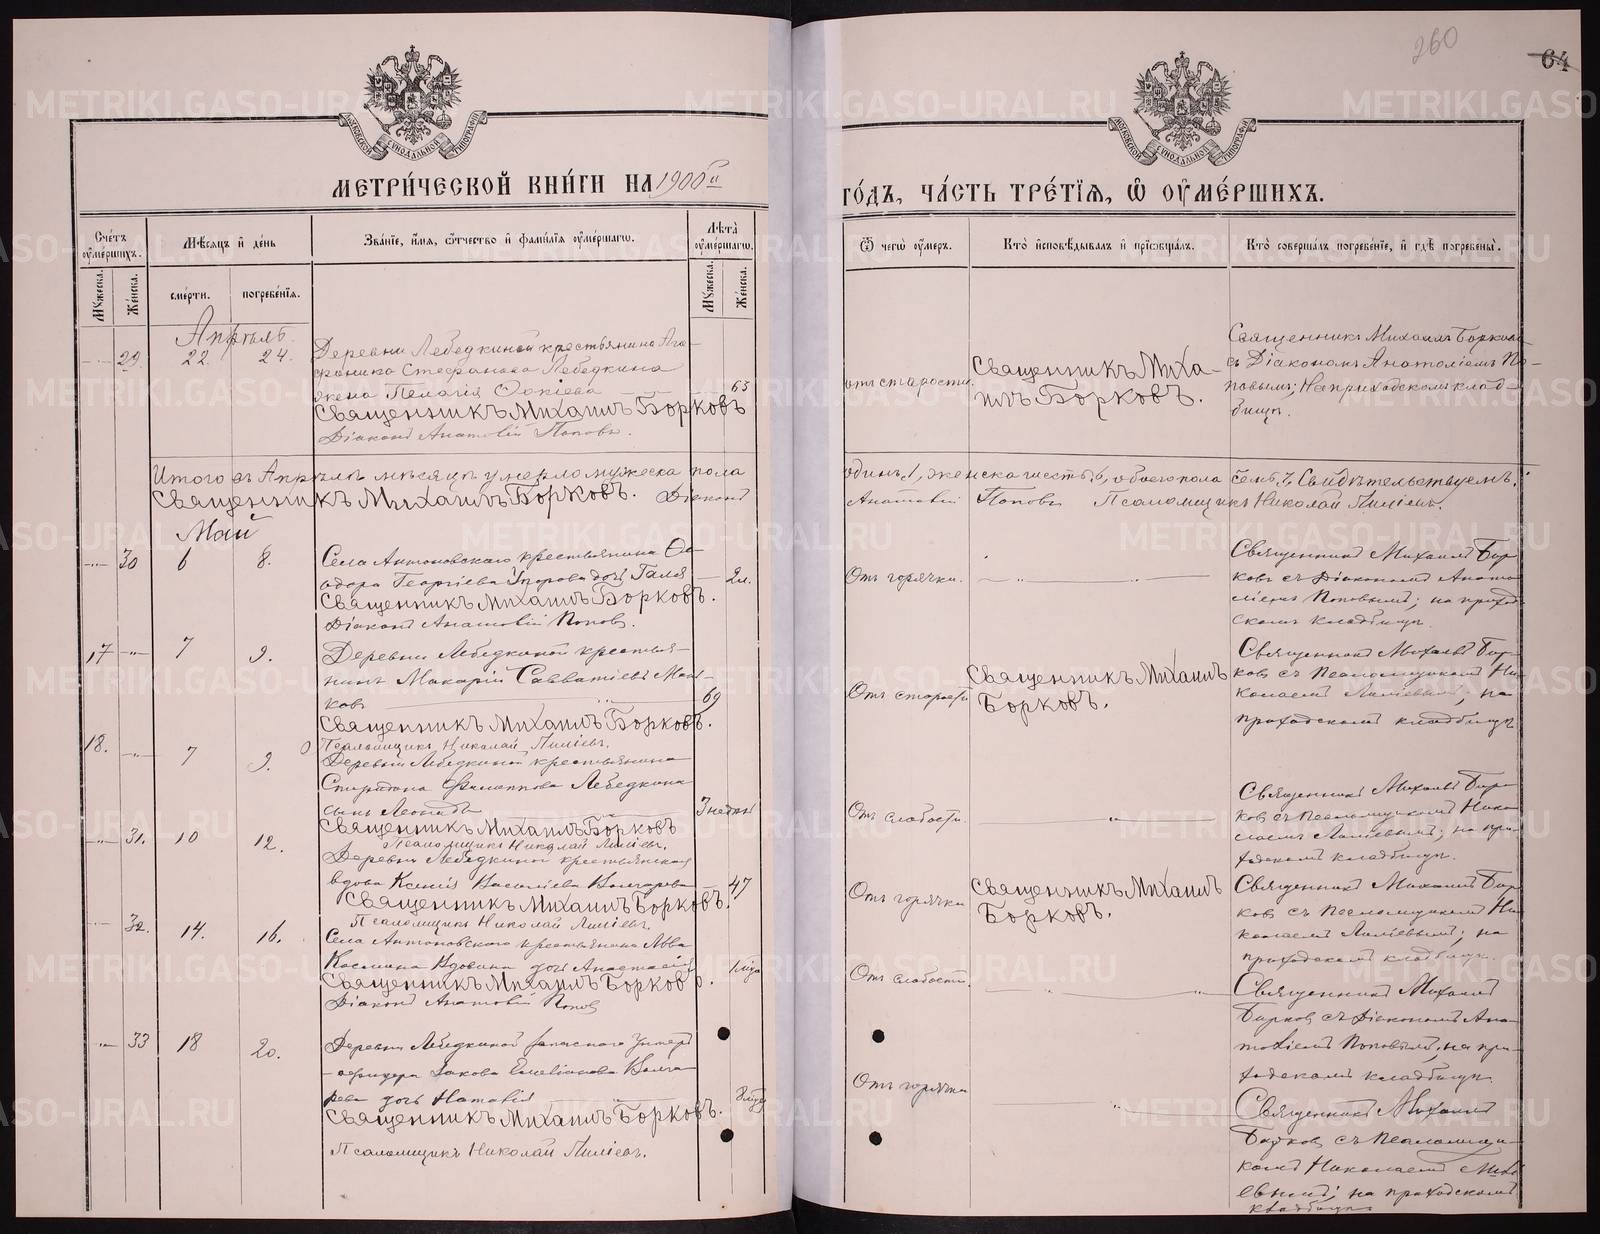 260
64
МЕТРИ́ЧЕСКОЙ КНИ́ГИ НА 1900й
ГО́ДЪ, ЧА́СТЬ ТРЕ́ТІѦ, Ѡ҆ ОУ҆МЕ́РШИХЪ.
МОСКОВСКОЙ СѴНОДАЛЬНОЙ ТИПОГРАФІИ
МОСКОВСКОЙ СѴНОДАЛЬНОЙ ТИПОГРАФІИ
Счетъ оумершихъ.
Мужеска.
Женска.
Мѣсяцъ и день
смерти.
погребенія.
Званіе, имя, отчество и фамилія оумершагѡ.
Лѣта оумершагѡ.
Мужеска.
Женска.
Ѿ чегѡ оумеръ.
Кто исповѣдывалъ и пріобщалъ.
Кто совершалъ погребеніе, и гдѣ погребены.
Апрѣль.
29. 22. 24.
Деревни Лебедкиной крестьянина Ага-
фоника Стефанова Лебедкина
жена Пелагія 63
Священникъ Михаилъ Борковъ
Діаконъ Анатолій Поповъ.
отъ старости.
Священникъ Миха-
илъ Борковъ.
Священникъ Михаилъ Борков
съ Діакономъ Анатоліемъ По-
повымъ; На приходскомъ клад-
бищѣ.
Итого въ Апрѣлѣ мѣсяцѣ умерло мужеска пола одинъ 1, женска шесть 6, обоего пола семь 7, Свидѣтельствуемъ:
Священникъ Михаилъ Борковъ. Діаконъ Анатолій Поповъ Псаломщикъ Николай Лиліевъ.
Май
30 6 8.
Села Антоновскаго крестьянина Ѳе-
одора Георгіева дочь 2 л.
Священникъ Михаилъ Борковъ.
Діаконъ Анатолій Поповъ.
Отъ горячки.
Священникъ Михаилъ Бор-
ковъ съ Діакономъ Анато-
ліемъ Поповымъ; на приход-
скомъ кладбищѣ.
17 7 9.
Деревни Лебедкиной крестья-
нинъ Макарій Савватіевъ
ковъ 69
Священникъ Михаилъ Борковъ.
Псаломщикъ Николай Лиліевъ.
Отъ старости
Священникъ Михаилъ
Борковъ.
Священникъ Михаилъ Бор-
ковъ съ Псаломщикомъ Ни-
колаемъ Лиліевымъ; на
приходскомъ кладбищѣ
18. 7 9.
Деревни Лебедкиной крестьянина
Спиридона Филиппова Лебедкина
сынъ Леонидъ 3 недѣли
Священникъ Михаилъ Борковъ
Псаломщикъ Николай Лиліевъ.
Отъ слабости
Священникъ Михаилъ Бор-
ковъ съ Псаломщикомъ Нико-
лаемъ Лиліевымъ; на при-
ходскомъ кладбищѣ.
31. 10 12.
Деревни Лебедкиной крестьянская
вдова Ксенія Василіева 47
Священникъ Михаилъ Борковъ.
Псаломщикъ Николай Лиліевъ.
Отъ горячки
Священникъ Михаилъ
Борковъ.
Священникъ Михаилъ Бор-
ковъ съ Псаломщикомъ Ни-
колаемъ Лиліевымъ; на
приходскомъ кладбищѣ.
32. 14. 16.
Села Антоновскаго крестьянина
Космина Вдовина дочь Анастасія
Священникъ Михаилъ Борковъ.
Діаконъ Анатолій Поповъ
Отъ слабости.
Священникъ Михаилъ
Борковъ съ Діакономъ Ана-
толіемъ Поповымъ; на при-
ходскомъ кладбищѣ.
33 18 20.
Деревни Лебедкиной запаснаго Унтеръ
-офицера Якова Емеліанова Волга-
рева дочь Наталія
Священникъ Михаилъ Борковъ.
Псаломщикъ Николай Лиліевъ.
Отъ горячки
Священникъ Михаилъ
Борковъ съ Псаломщи-
комъ Николаемъ Лилі-
евымъ; на приходскомъ
кладбищѣ
METRIKI.GASO-URAL.RU